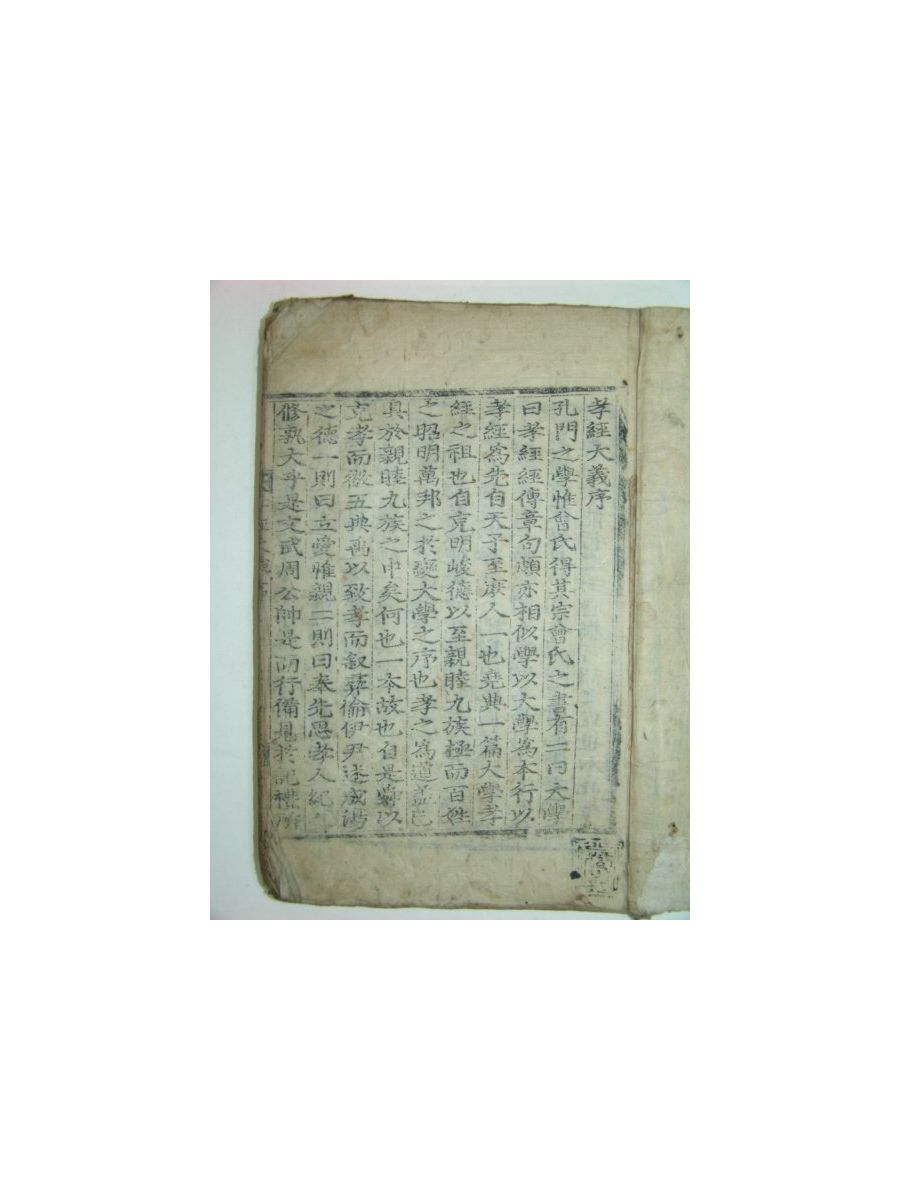 孝經大義序
孔門之學惟曾氏得其宗曾氏之書有二曰大學
曰孝經經傳章句頗亦相似學以大學爲本行以
孝經爲先自天子至庶人一也堯典一篇大學孝
經之祖也自克明峻德以至親睦九族極而百姓
之昭明萬邦之於變大學之序也孝之爲道蓋已
具於親睦九族之中矣何也一本故也自是舜以
克孝而徽五典禹以致孝而叙彝倫伊尹述成湯
之德一則曰立愛惟親二則曰奉先思孝人紀
修孰大乎是文武周公帥是而行備見於記禮所